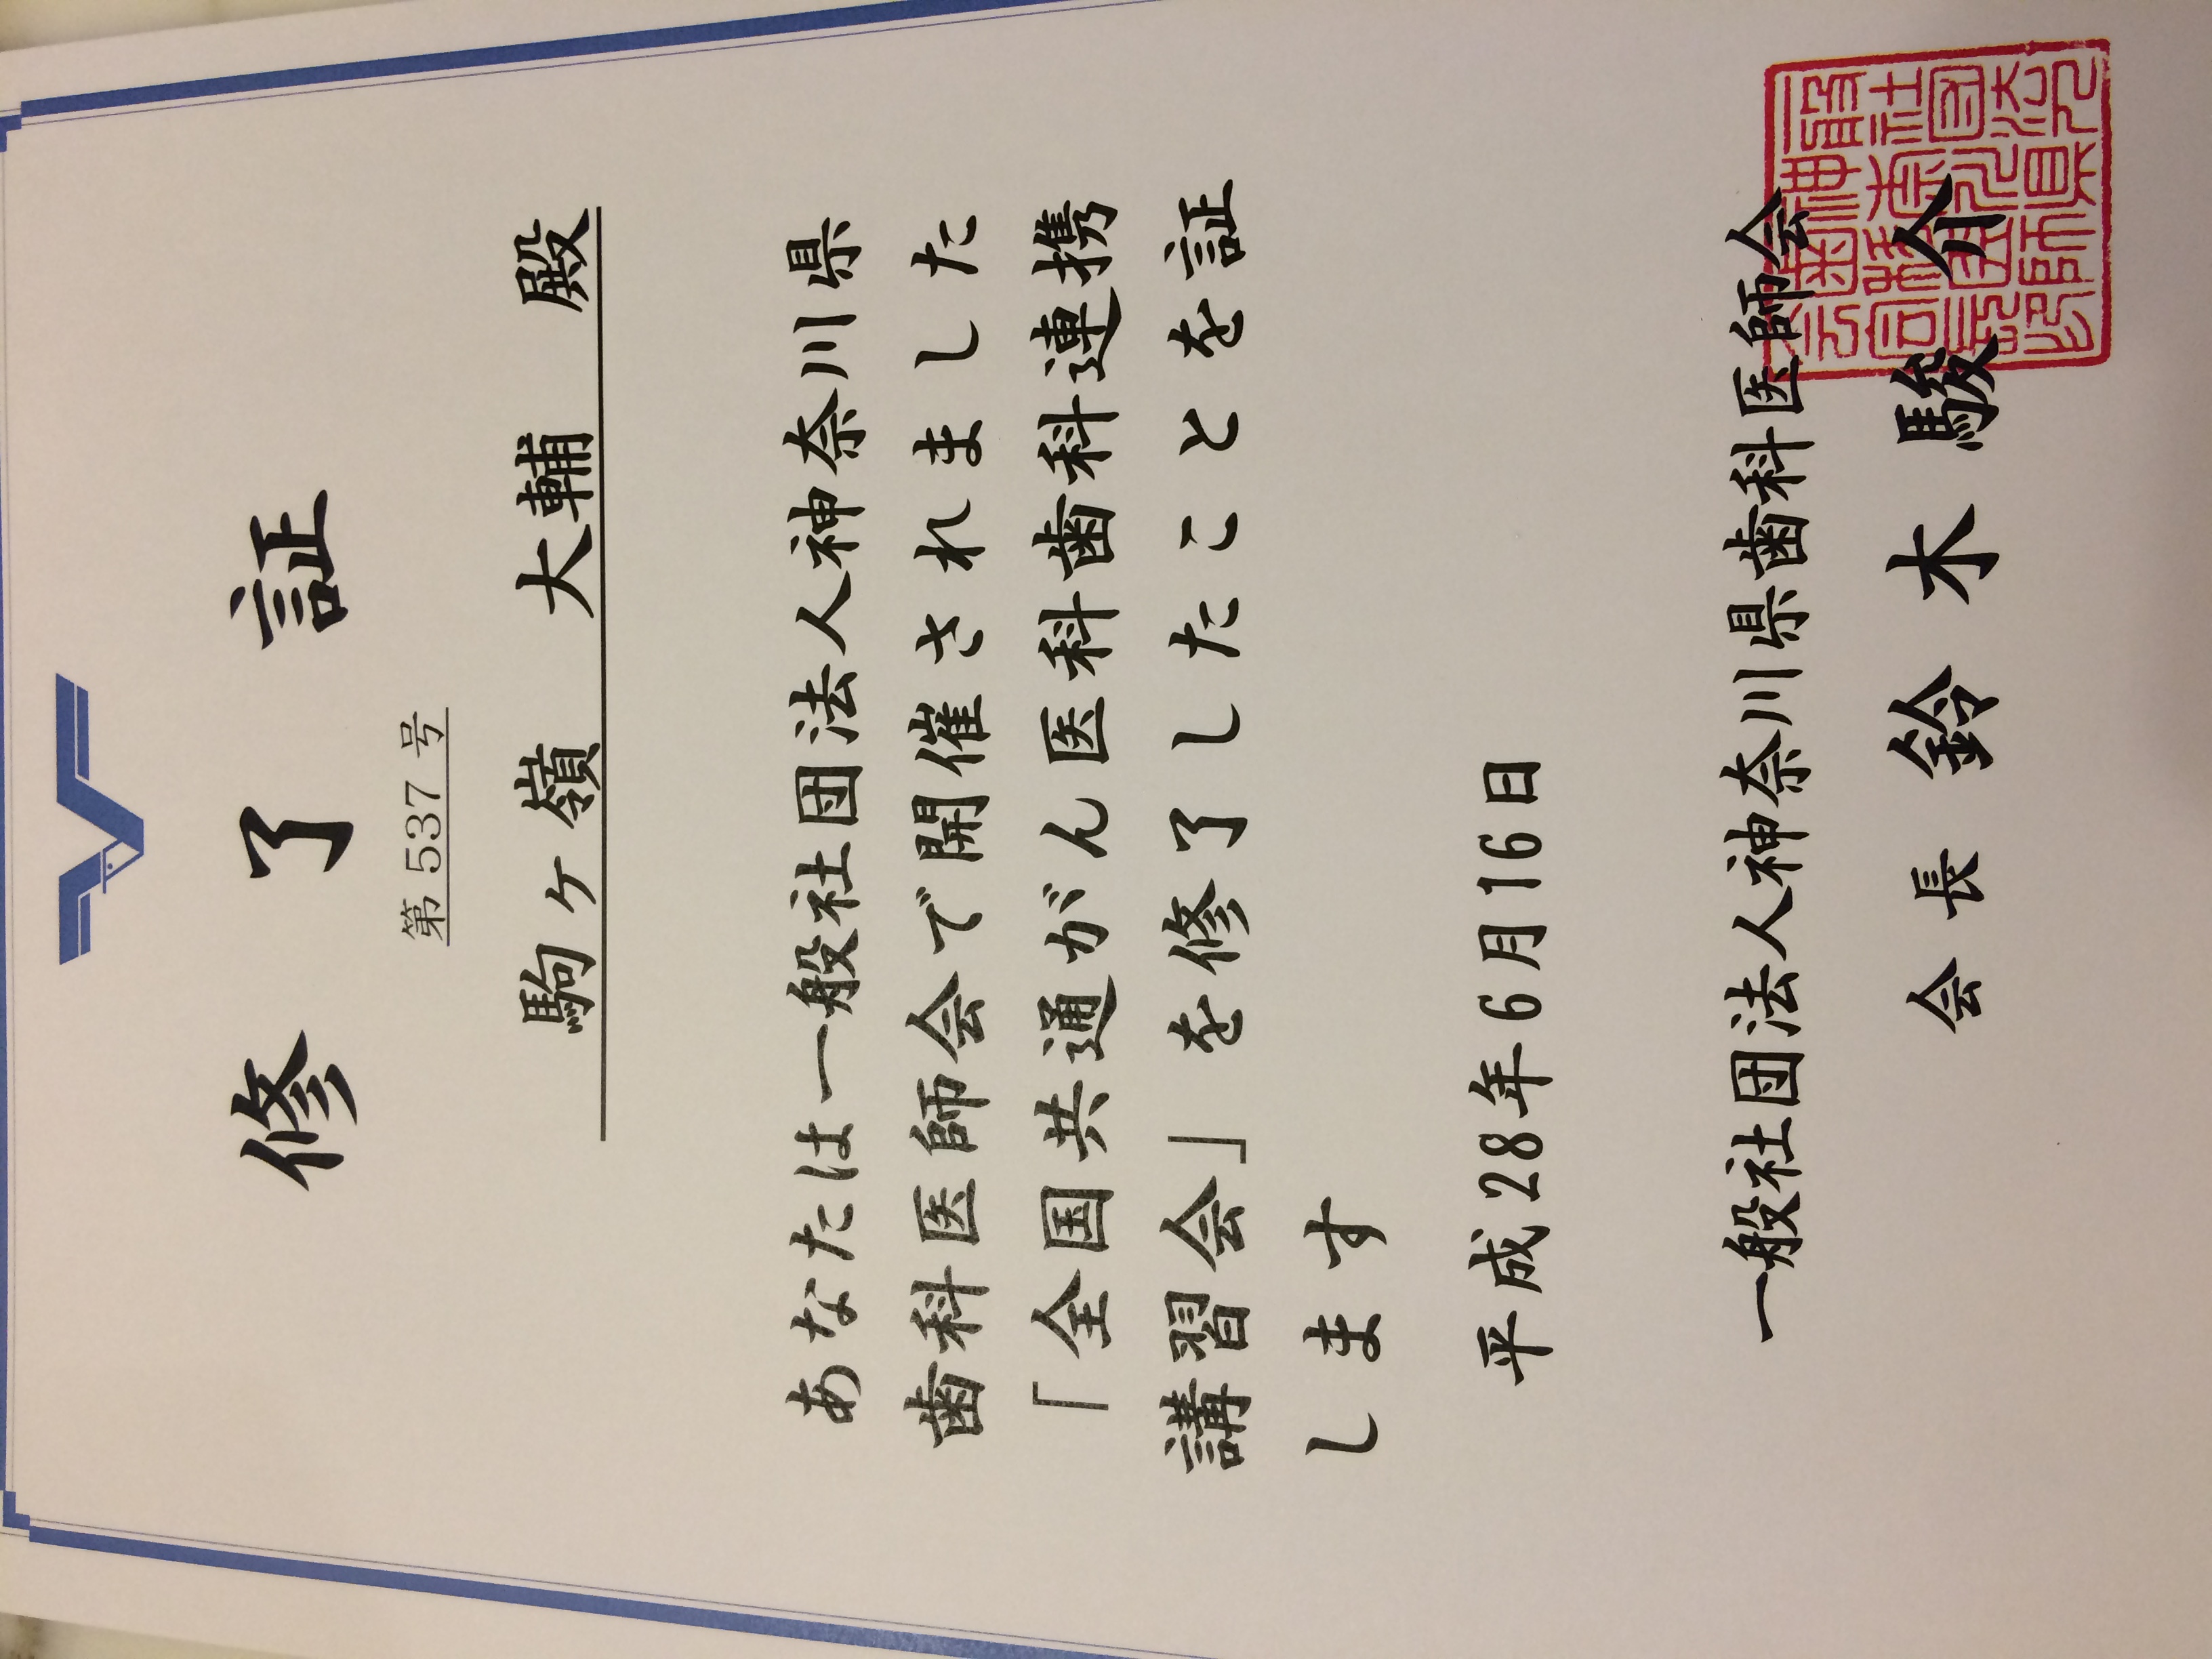 修了証
第537号
駒ヶ嶺 大輔 殿
あなたは一般社団法人神奈川県
歯科医師会で開催されました
「全国共通がん医科歯科連携
講習会」を修了したことを証
します
平成28年6月16日
一般社団法人神奈川県歯科医師会
会長 鈴木駿介